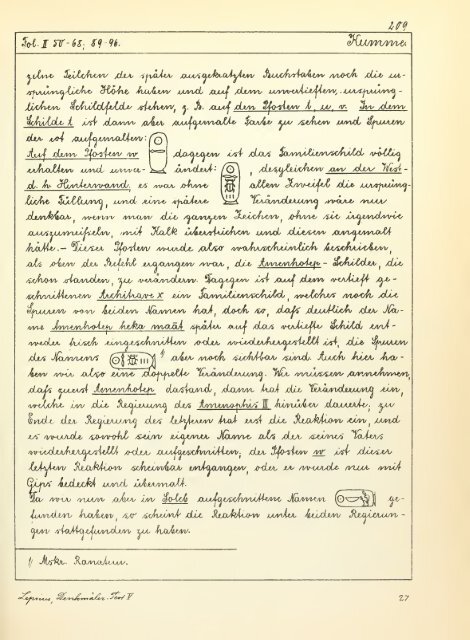 209
Tol. II 50-68; 89-96. Kumma
zelne Teilchen der später ausgekratzten Buchstaben noch die ur-
sprüngliche Höhe haben und auf dem unvertieften, ursprüng-
lichen Schildfelde stehen, z. B. auf den Pfosten t, u, v. In dem
Schilde t ist dann aber aufgemalte Farbe zu sehen und Spuren
der rot aufgemalten:
Auf dem Pfosten w dagegen ist das Familienschild völlig
erhalten und unver- ändert: , desgleichen an der West-
d. h. Hinterwand, es war ohne allen Zweifel die ursprüng-
liche Füllung, und eine spätere Veränderung wäre nur
denkbar, wenn man die ganzen Zeichen, ohne sie irgendwie
auszumeißeln, mit Kalk überstrichen und diesen angemalt
hätte. – Dieser Pfosten wurde also wahrscheinlich beschrieben,
als oben der Befehl ergangen war, die Amenhotep-Schilder, die
schon standen, zu verändern. Dagegen ist auf dem vertieft ge-
schnittenen Architrave x ein Familienschild, welches noch die
Spuren von beiden Namen hat, doch so, daß deutlich der Na-
me Amenhotep heka maât später auf das vertiefte Schild ent-
weder frisch eingeschnitten oder wiederhergestellt ist, die Spuren
des Namens 1) aber noch sichtbar sind. Auch hier ha-
ben wir also eine doppelte Veränderung. Wir müssen annehmen,
daß zuerst Amenhotep dastand, dann trat die Veränderung ein,
welche in die Regierung des Amenophis III hinüber dauerte; zu
Ende der Regierung des letzteren trat erst die Reaktion ein, und
es wurde sowohl sein eigener Name als der seines Vaters
wiederhergestellt oder aufgeschnitten; der Pfosten w ist dieser
letzten Reaktion scheinbar entgangen, oder er wurde nur mit
Gips bedeckt und übermalt.
Da wir nun aber in Soleb aufgeschnittene Namen ge-
funden haben, so scheint die Reaktion unter beiden Regierun-
gen stattgefunden zu haben.
1) Mskr. Ranatur.
Lepsius, Denkmäler. Text V 27